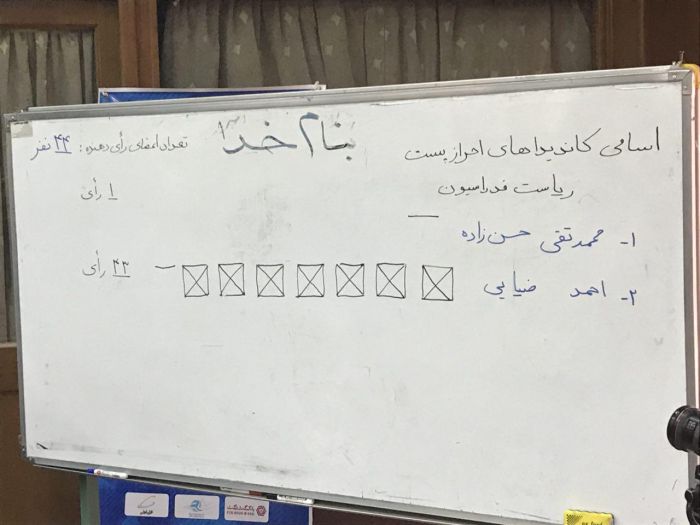 بنام خدا
اسامی کاندیداهای احراز پست
ریاست فدراسیون
تعداد اعضای رأی دهنده: ۴۴ نفر
۱- محمد تقی حسن زاده
۱ رأی
۲- احمد ضیایی
۴۳ رأی